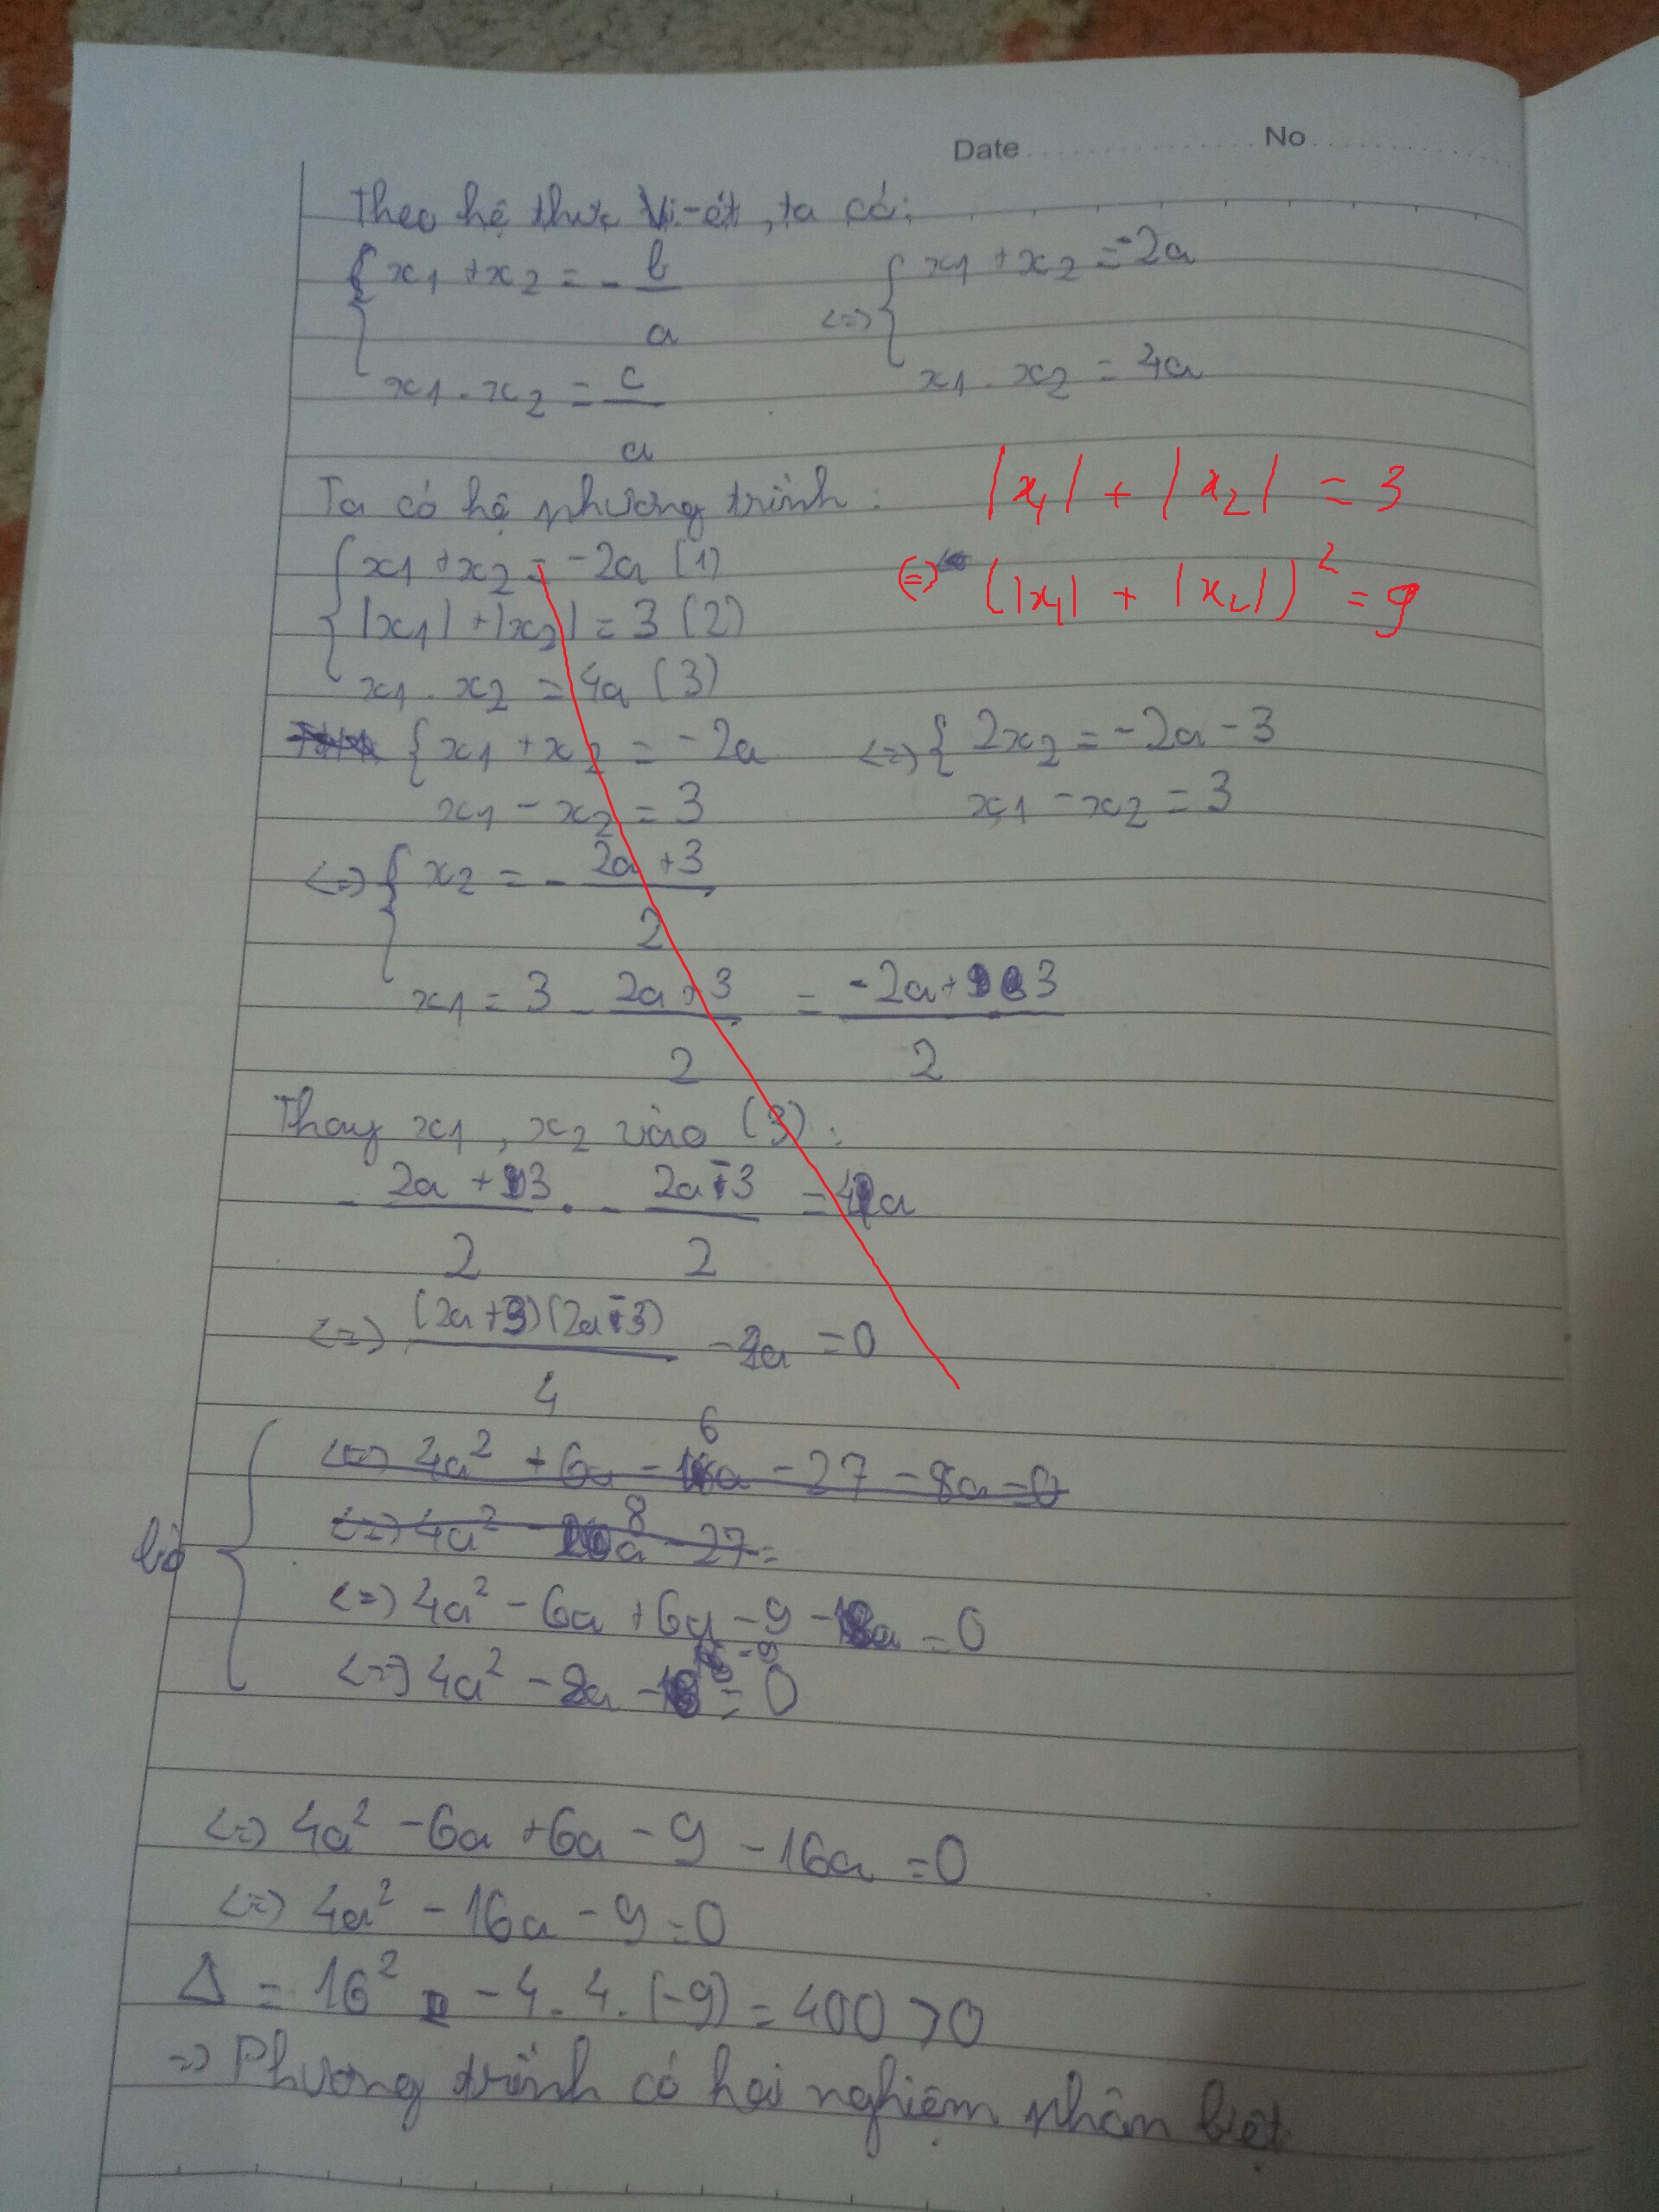 Date No
Theo hệ thức Vi-ét, ta có:
{ x1 + x2 = - b/a <=> { x1 + x2 = -2a
x1 . x2 = c/a x1 . x2 = 4a
Ta có hệ phương trình: |x1| + |x2| = 3
{ x1 + x2 = -2a (1) <=> (|x1| + |x2|)² = 9
|x1| + |x2| = 3 (2)
x1 . x2 = 4a (3)
{ x1 + x2 = -2a <=> { 2x2 = -2a - 3
x1 - x2 = 3 x1 - x2 = 3
<=> { x2 = - 2a + 3 / 2
x1 = 3 - 2a + 3 / 2 = -2a + 3 / 2
Thay x1, x2 vào (3):
- 2a + 3 / 2 . - 2a - 3 / 2 = 4a
<=> (2a + 3)(2a - 3) / 4 - 4a = 0
<=> 4a² + 6a - 6a - 27 - 8a = 0
bỏ <=> 4a² - 8a - 27 =
<=> 4a² - 6a + 6a - 9 - 8a = 0
<=> 4a² - 8a - 9 = 0
<=> 4a² - 6a + 6a - 9 - 16a = 0
<=> 4a² - 16a - 9 = 0
Δ = 16² - 4 . 4 . (-9) = 400 > 0
=> Phương trình có hai nghiệm phân biệt